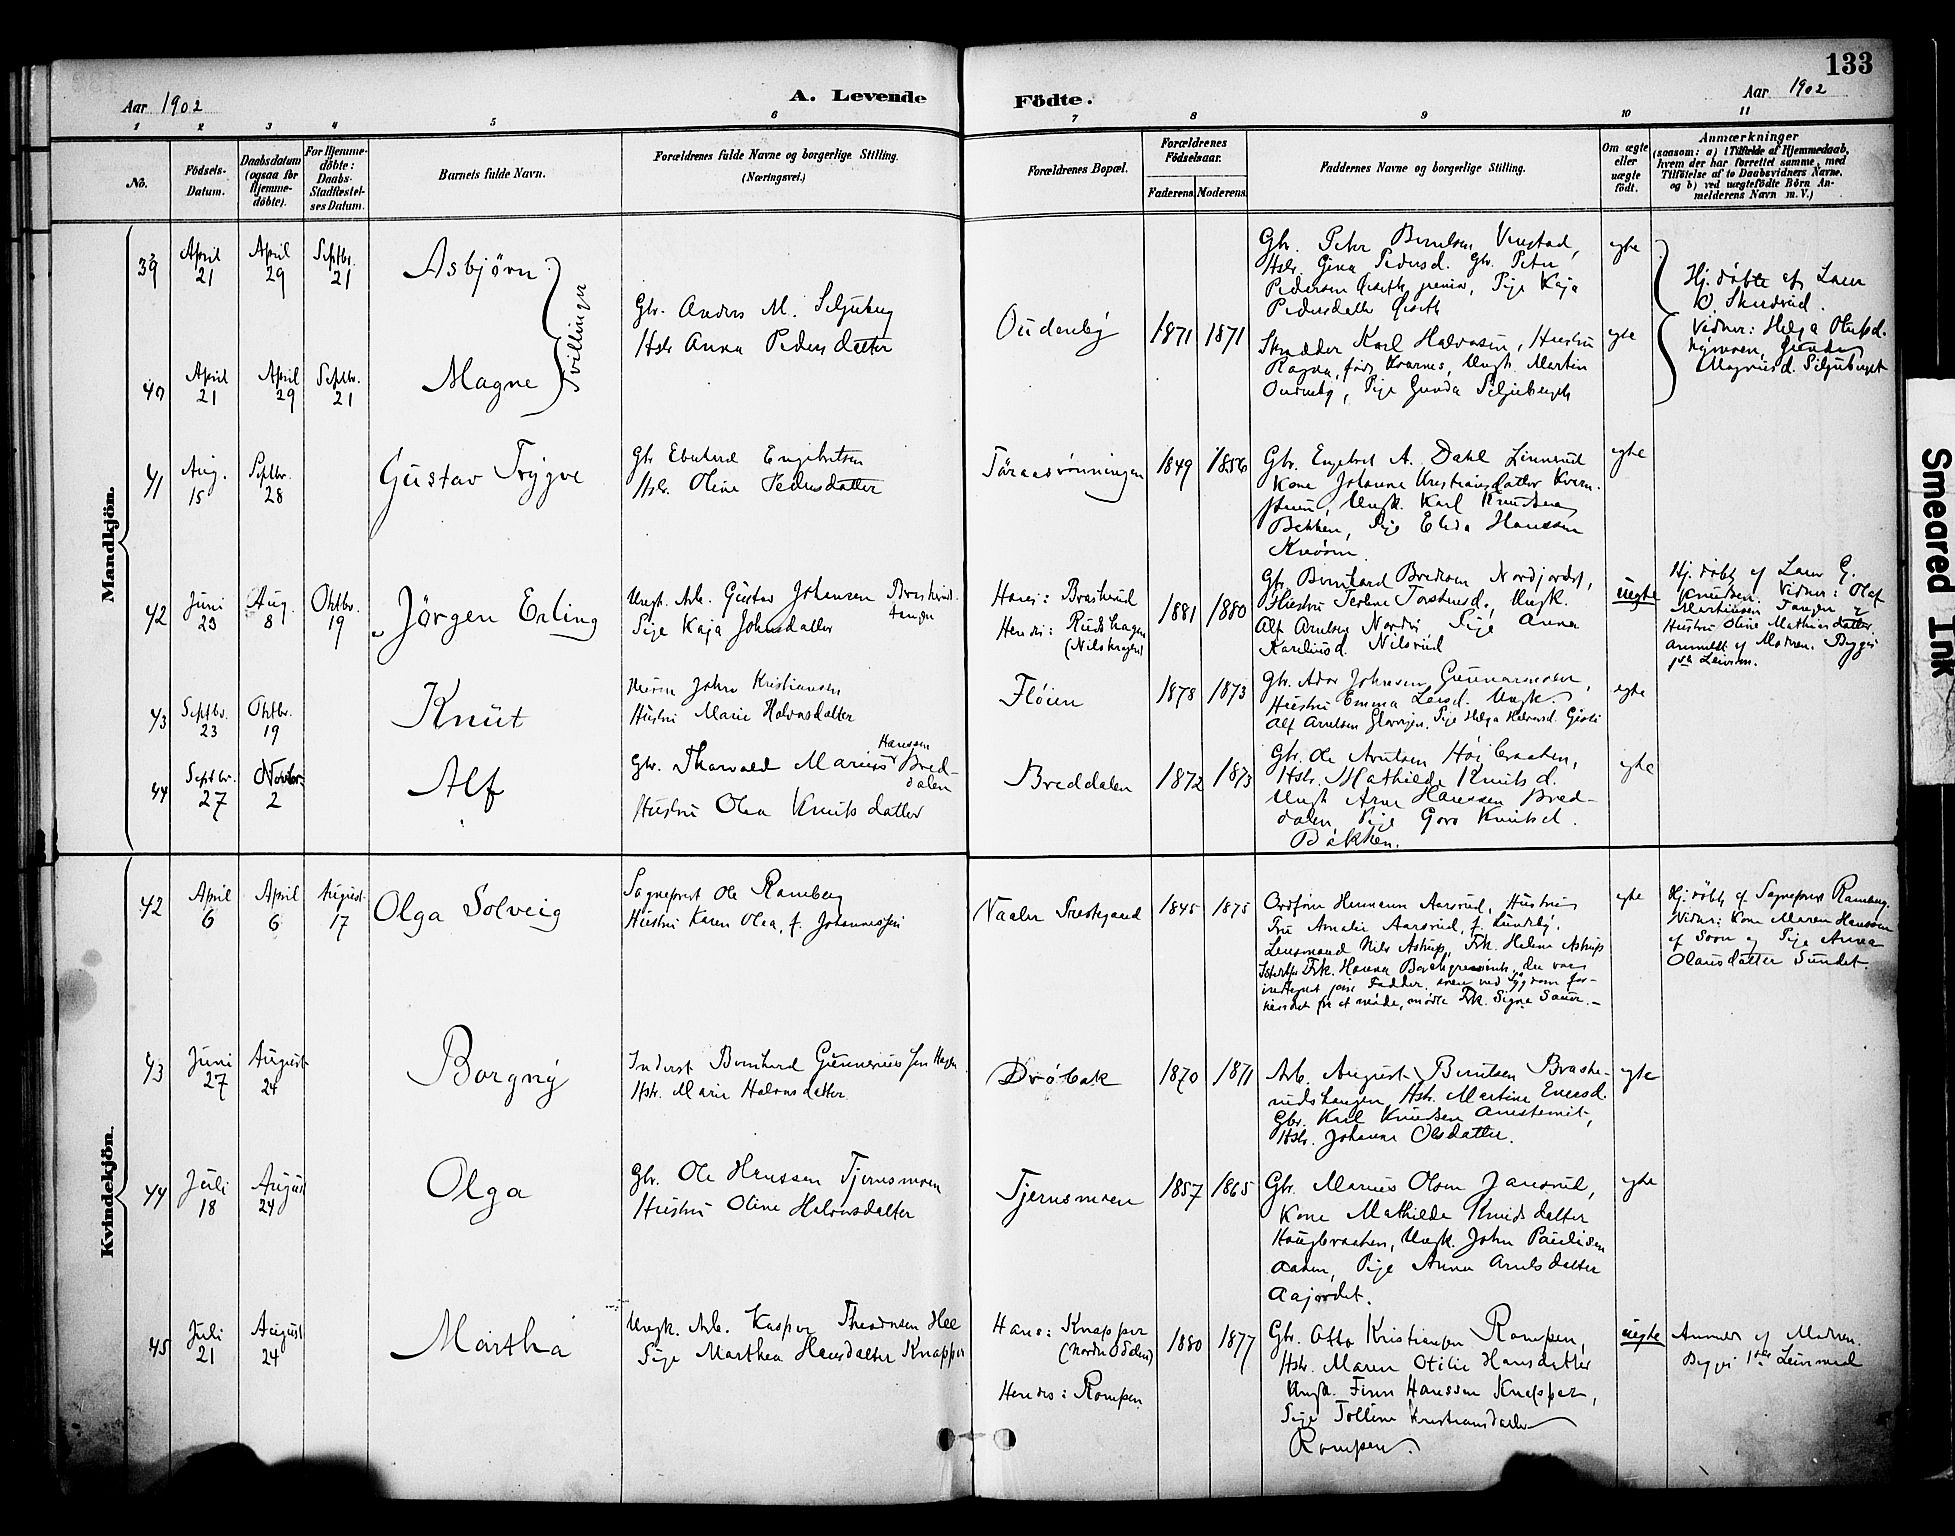 133
Aar 1902
A. Levende
Födte.
Aar 1902
1 2 3 4 5 6 7 8 9 10 11
No.
Födsels-
Datum.
Daabsdatum
(ogsaa for
Hjemme-
döbte).
For Hjemme-
döbte:
Daabs-
Stadfæstel-
ses Datum.
Barnets fulde Navn.
Forældrenes fulde Navne og borgerlige Stilling.
(Næringsvei.)
Forældrenes Bopæl.
Forældrenes
Födselsaar.
Faderens. Moderens.
Faddernes Navne og borgerlige Stilling.
Om ægte
eller
uægte
födt.
Anmærkninger
(saasom: a) i Tilfælde af Hjemmedaab,
hvem der har forrettet samme, med
Tilföielse af to Daabsvidners Navne.
og b) ved uægtefödte Börn An-
melderens Navn m. V.)
Mandkjön.
39
April
21
April
29
Septbr.
21
Asbjørn
Tvillinger
Gbr. Anders M. Seljuberg
Hstr Anna Pedersdatter
Oudenby
1871 1871
Gbr. Peter Berntsen Vinstad,
Hstr. Gina Pedersd. Gbr. Peter
Pedersen Giseth, Pige Kaja
Pedersdatter Giseth
egte
Hj. døbte af Lærer
Ø. Skurdrud.
Vidner: Helga Olufsd.
Nymoen, Gunda
Magnusd. Seljuberget
40
April
21
April
29
Septbr.
21
Magne
Skrædder Karl Halvorsen, Hustru
Ragna, født Kvarnes, Ungk. Martin
Oudenby, Pige Gunda Seljuberget
egte
41
Aug.
15
Septbr.
28
Gustav Trygve
Gbr Edvard Engebretsen
Hstr. Oline Pedersdatter
Toraasrønningen
1849 1856
Gbr. Engebret A. Dahl Linnerud
Kone Johanne Kristiansdatter Kvern-
Ungk. Karl Knudsen
Bekken, Pige Elida Hanssen
egte
42
Juni
23
Aug.
8
Oktbr.
19
Jørgen Erling
Ungk. Arb. Gustav Johansen Braskerud-
tangen
Pige Kaja Johnsdatter
Hans: Braskerud
Hendes: Rudshagen
(Nilskragen)
1881 1880
Gbr Bernhard Bredesen Nordjordet,
Hustru Terline Torstensd., Ungk.
Alf Arnesen Nordby Pige Anna
Karlined. Nilsrud
uegte
Hj. døbt af Lærer G.
Knudsen. Vidner: Olaf
Martinsen Tangen &
Hustru Oline Mathiasdatter.
Anmeldt af Moderen. Begges
1ste Leierm.
43
Septbr.
23
Oktbr.
19
Knut
Murer John Kristiansen
Hustru Marie Halvorsdatter
Fløien
1878 1873
Gbr. Ador Johnsen Gunnarsmoen,
Hustru Emma Larsd. Ungk.
Alf Arnesen Glorvigen. Pige Helga Halvorsd.
egte
44
Septbr.
27
Novbr.
2
Alf
Gbr. Thorvald Marius Hanssen Bred-
dalen
Hustru Olea Knutsdatter
Breddalen
1872 1873
Gbr. Ole Arntsen Høibraaten,
Hstr. Mathilde Knutsd.
Ungk Arne Hanssen Bred-
dalen, Pige Goro Knutsd.
Bakken.
egte
Kvindekjön.
42
April
6
April
6
August
17
Olga Solveig
Sogneprest Ole Ramberg
Hustru Karen Olea, f. Johannessen
Vaaler Prestegaard
1845 1875
Ordfører Hermann Aarsrud, Hustru
Fru Amalie Aarsrud, f. Lundeby.
Lensmand Nils Astrup, Frk. Helene Astrup
Istedetfor Frk. Hanna Borchgrevinck, der var
indtegnet som Fadder, men ved Sygdom for-
hindret fra at møde, mødte Frk. Signe Sauer.-
egte
Hj. døbt af Sogneprest Ramberg.
Vidner: Kone Maren Hanssen
af Soon og Pige Anna
Olausdatter Sundet.
43
Juni
27
August
24
Borgny
Inderst Bernhard Gunneriussen Hagen
Hstr. Marie Halvorsdatter
Drøbak
1870 1871
Arb. August Berntsen Braske-
rudshaugen, Hstr. Martine Enersd.
Gbr. Karl Knudsen
Hstr. Johanne Olsdatter.
egte
44
Juli
18
August
24
Olga
Gbr. Ole Hanssen Tjernsmoen
Hustru Oline Halvorsdatter
Tjernsmoen
1857 1865
Gbr. Marius Olsen Jansrud,
Kone Mathilde Knudsdatter
Haugbraaten, Ungk. John Paulsen
Aasen, Pige Anna Arnesdatter
Aajordet.
egte
45
Juli
21
August
24
Martha
Ungk. Arb. Kasper Theodorsen Hee
Pige Marthea Hansdatter Knapper
Hans: Knapper
(Nordre Odalen)
Hendes: Rompen
1880 1877
Gbr. Otto Kristiansen Rompen,
Hstr. Maren Otilie Hansdatter
Ungk. Finn Hanssen Knapper,
Pige Tolline Kristiansdatter
Rompen.
uegte
Anmeldt af Moderen.
Begges 1ste Leiermaal
Smeared Ink